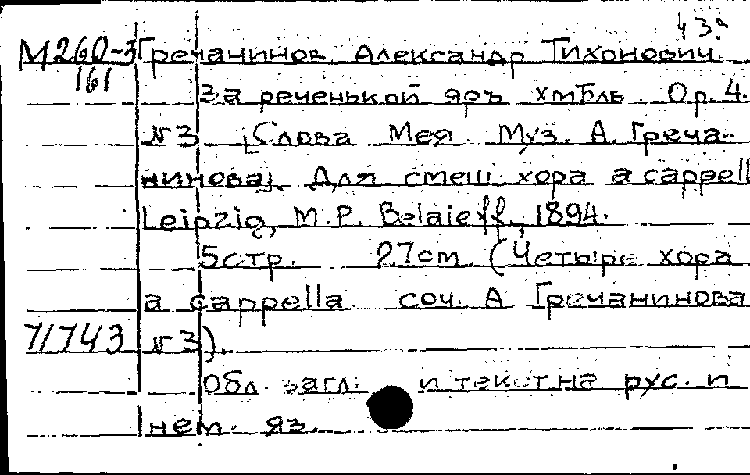 43.
М260-3 Гречанинов Александр Тихонович
161 За реченькой яръ хмѣль Op. 4.
№ 3 [Слова Мея Муз. А. Греча-
нинова]. Для смеш. хора a cappell
Leipzig, M. P. Belaieff, 1894.
5 стр. 27 cm. (Четыре хора
a cappella соч. А Гречанинова
71743 № 3).
Обл. загл. и текст на рус. и
нем. яз.